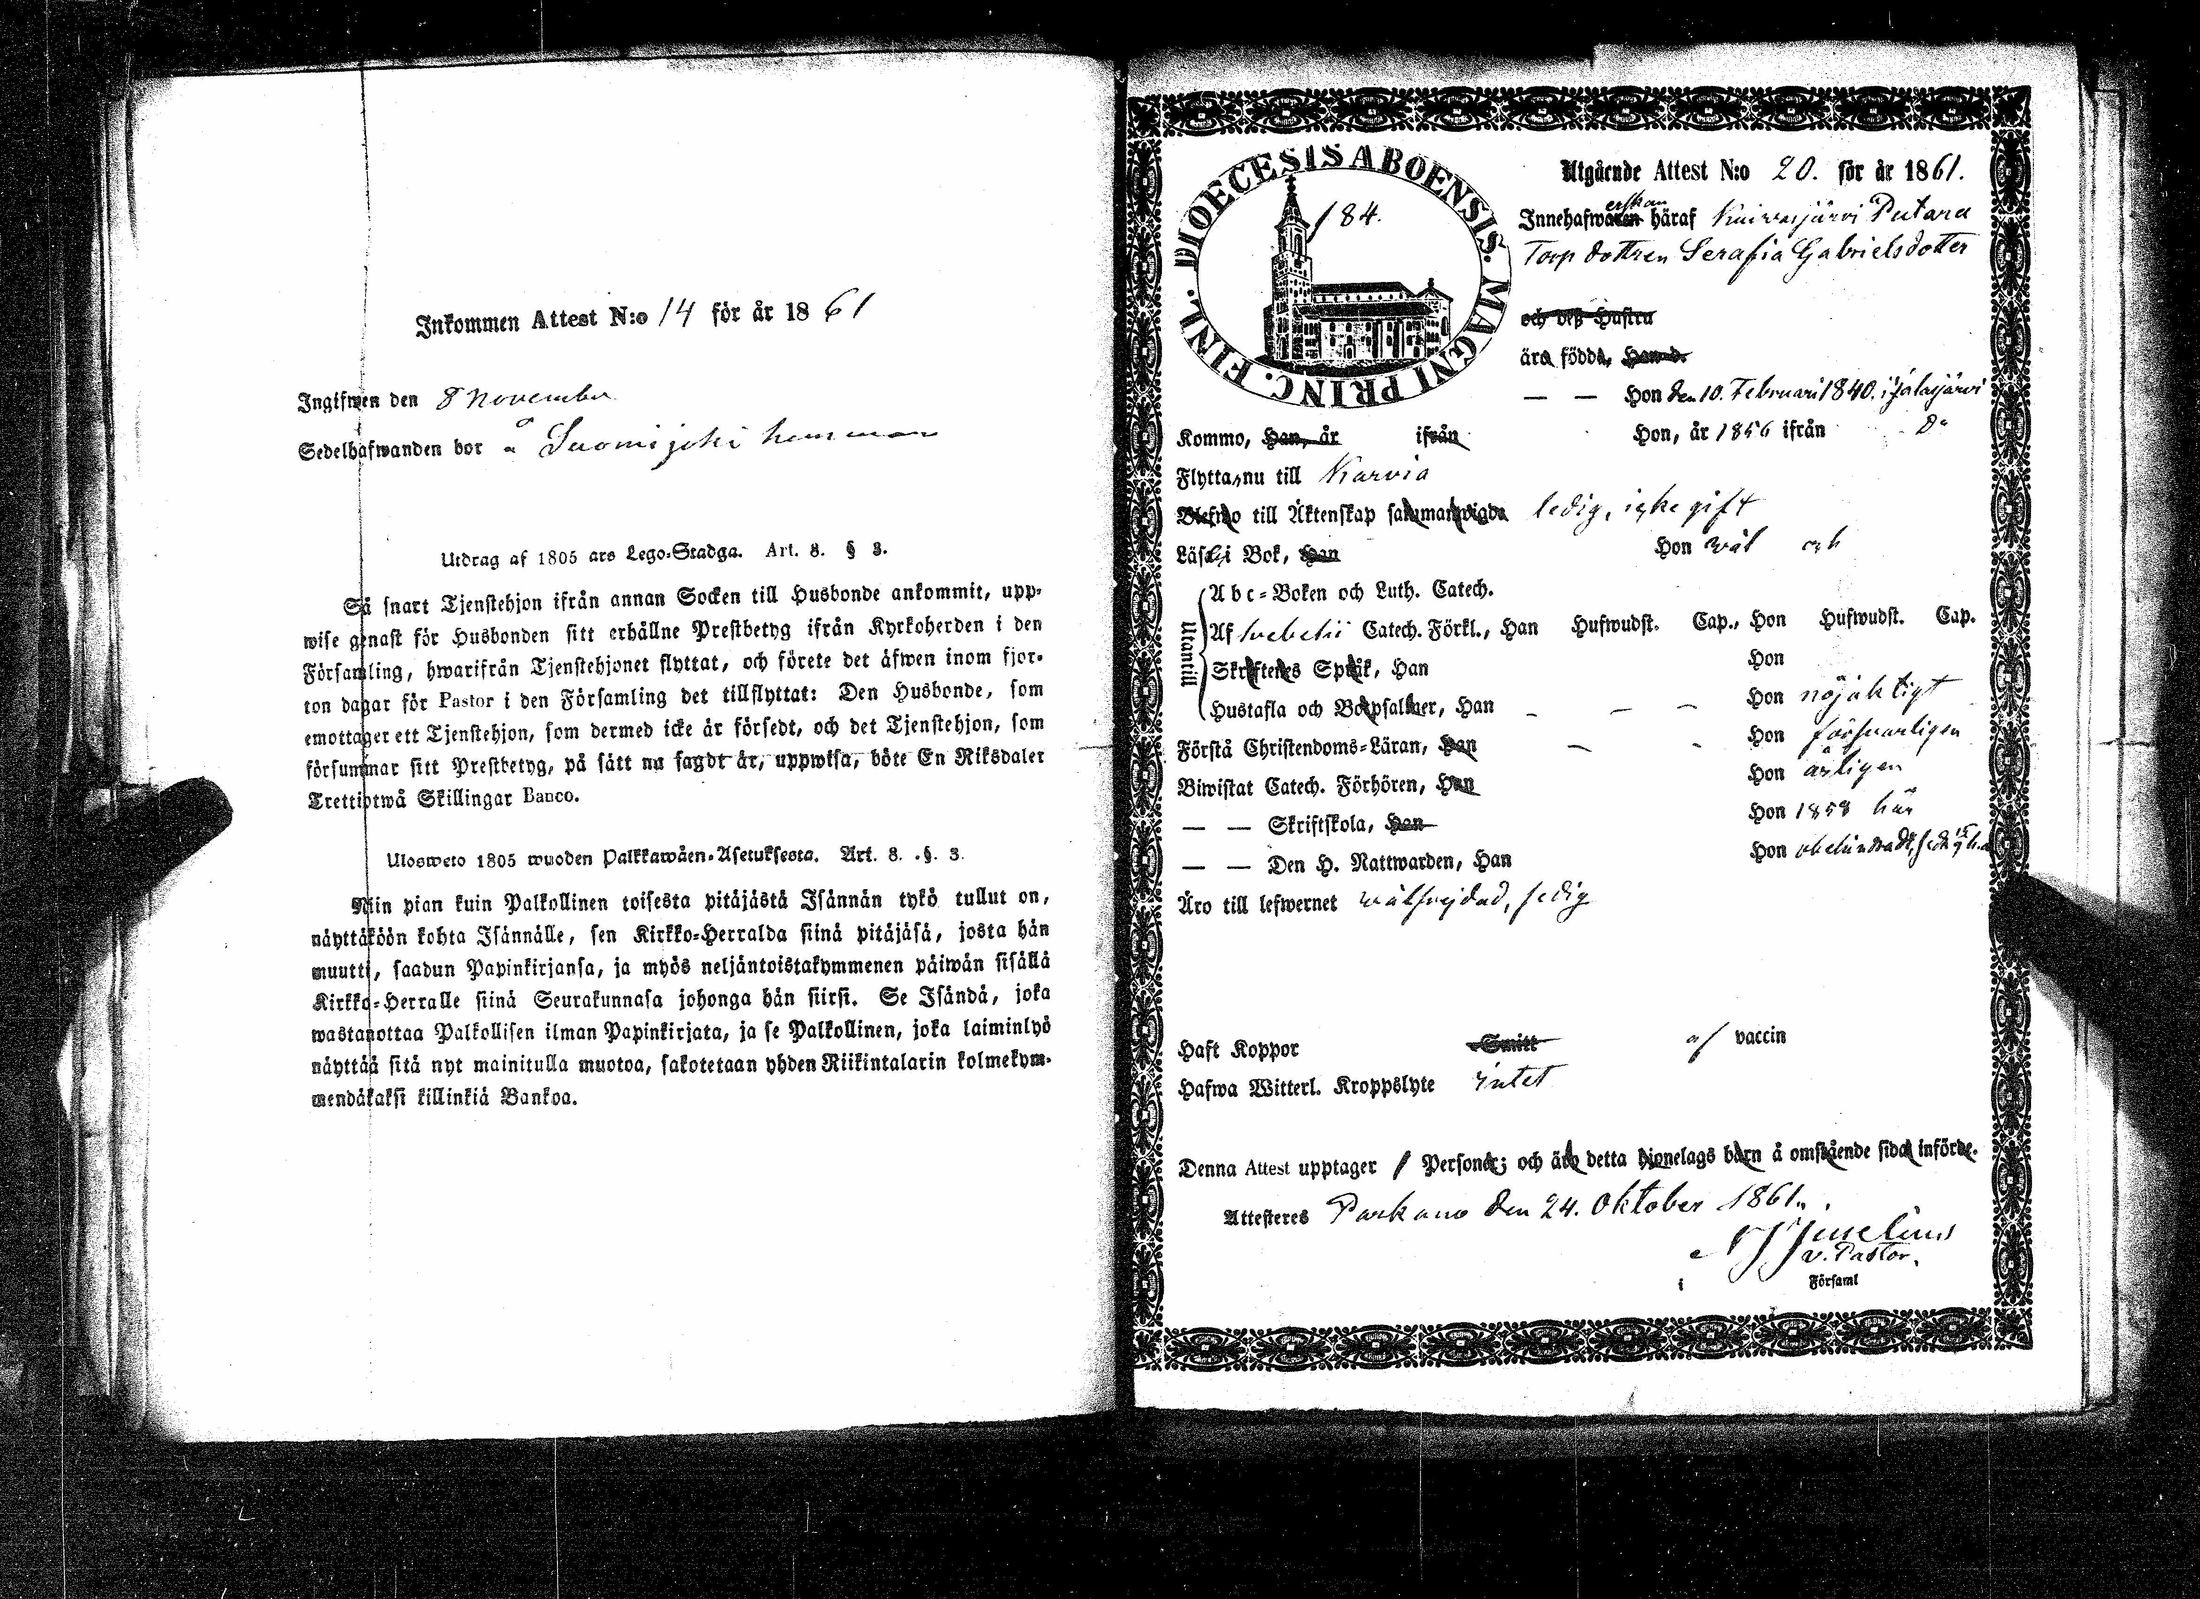 Inkommen Attest N:o 14 för år 1861
Ingifwen den 8 November
Sedelhafwanden bor å Suomijoki hemman
Utdrag af 1805 ars Lego-Stadga. Art. 8. § 3.
Så snart Tjenstehjon ifrån annan Socken till Husbonde ankommit, upp-
wise genast för Husbonden sitt erhållne Prestbetyg ifrån Kyrkoherden i den
Församling, hwarifrån Tjenstehjonet flyttat, och förete det äfwen inom fjor-
ton dagar för Pastor i den Församling det tillflyttat: Den Husbonde, som
emottager ett Tjenstehjon, som dermed icke är försedt, och det Tjenstehjon, som
försummar sitt Prestbetyg, på sätt nu sagdt är, uppwisa, böte En Riksdaler
Trettiotwå Skillingar Banco.
Ulosweto 1805 wuoden Palkkawäen-Asetuksesta. Art. 8. §. 3.
Niin pian kuin Palkollinen toisesta pitäjästä Isännän tykö tullut on,
näyttäköön kohta Isännälle, sen Kirkko-Herralda siinä pitäjäsä, josta hän
muutti, saadun Papinkirjansa, ja myös neljäntoistakymmenen päiwän sisällä
Kirkko-Herralle siinä Seurakunnasa johonga hän siirsi. Se Isändä, joka
wastanottaa Palkollisen ilman Papinkirjata, ja se Palkollinen, joka laiminlyö
näyttää sitä nyt mainitulla muotoa, sakotetaan yhden Riikintalarin kolmekym-
mendäkaksi killinkiä Bankoa.
DIOECESIS ABOENSIS. MAGNI PRINC. FINL.
184.
Utgående Attest N:o 20. för år 1861.
Innehafwaren häraf Kuivasjärvi Putara
Torp dottren Serafia Gabrielsdotter
och deß Hustru
ära födda, Han d.
— — Hon den 10. Februari 1840. i Jalasjärvi
Kommo, Han, år ifrån Hon, år 1856 ifrån Do
Flytta nu till Karvia
Blefwo till Äktenskap sammanwigda ledig, icke gift
Läsa i Bok, Han Hon wäl och
Utantill
Abc-Boken och Luth. Catech.
Af Svebelii Catech. Förkl., Han Hufwudst. Cap., Hon Hufwudst. Cap.
Skriftenes Språk, Han Hon
Hustafla och Botpsalmer, Han — — — Hon nöjaktigt
Förstå Christendoms-Läran, Han — - Hon försvarligen
Biwistat Catech. Förhören, Han Hon årligen
— — Skriftskola, Han Hon 1858 här
— — Den H. Nattwarden, Han Hon obehindradt,
Äro till lefwernet wälfrejdad, ledig
Haft Koppor Smitt af vaccin
Hafwa Witterl. Kroppslyte intet
Denna Attest upptager 1 Personer; och äro detta hjonelags barn å omstående sida införde.
Attesteres Parkano den 24. Oktober 1861.
v. Pastor.
i Församl